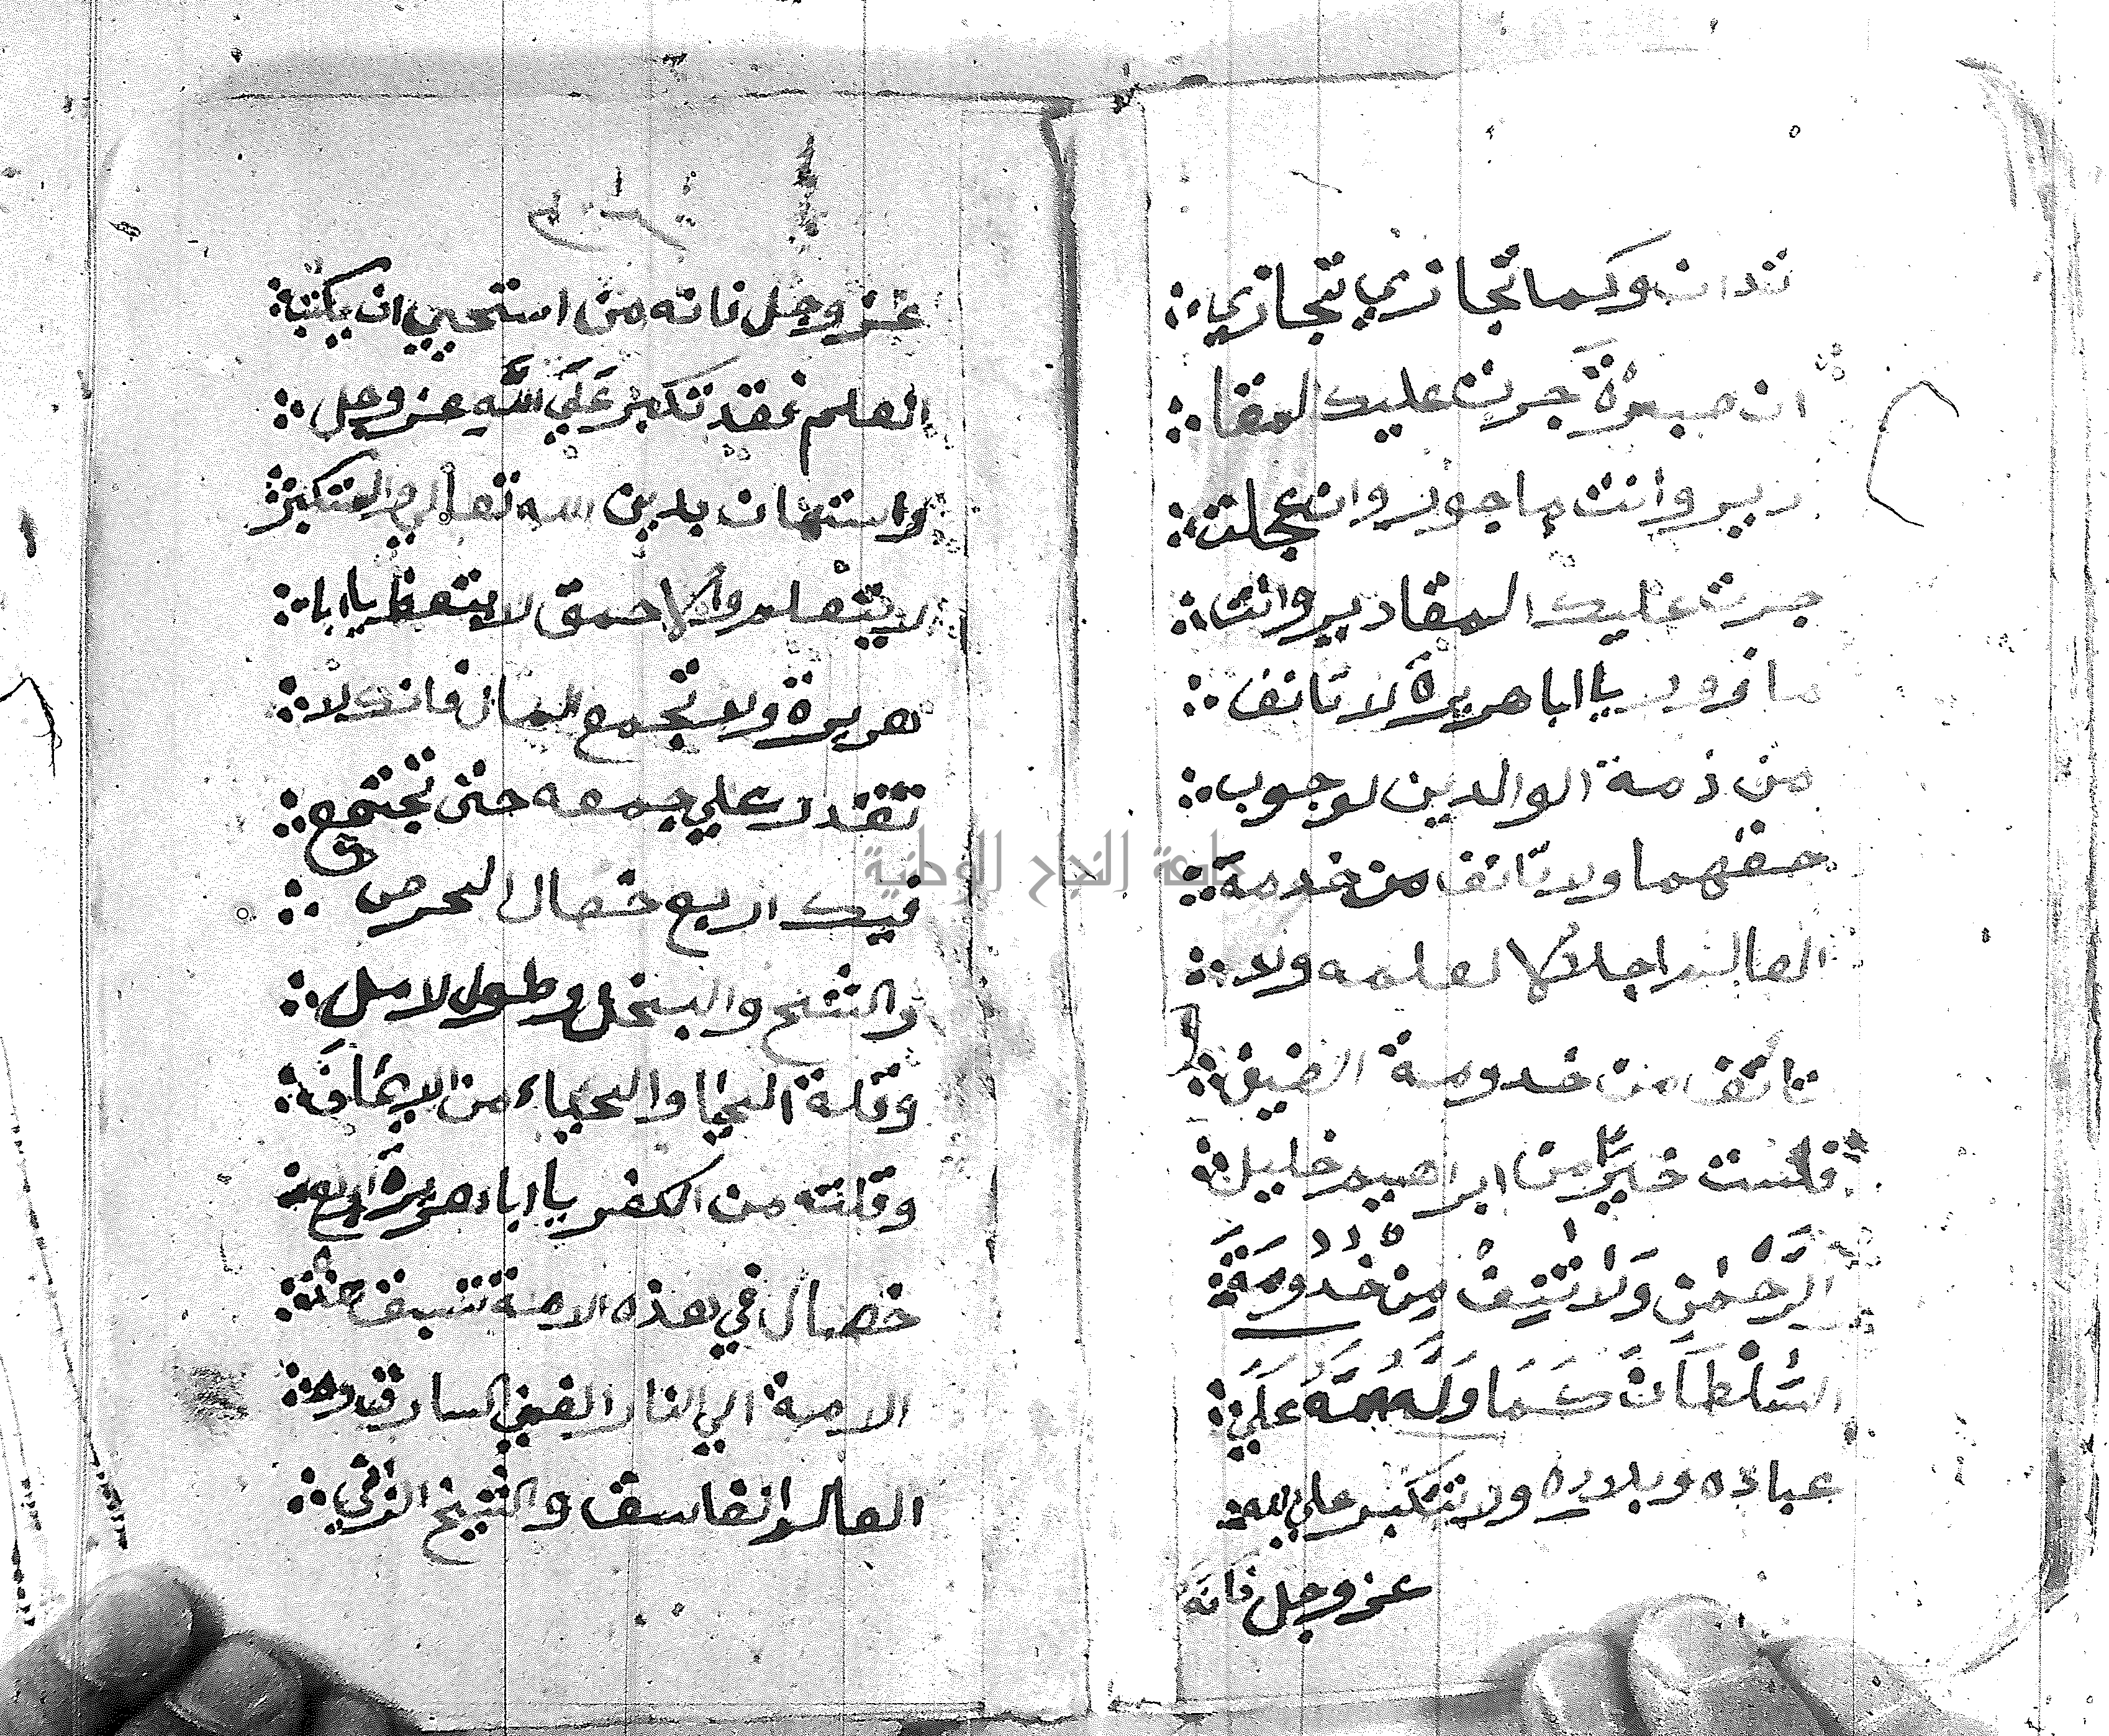 تدان وكما تجازي تتجازي
ان صبرة جرت عليك المقا
دير وانت ماجور وان عجلت
جرت عليك المقادير وانت
مازور يا ابا هريرة لا تانف
من ذمة الوالدين لوجوب
حقهما ولا تانف من خدمة
العالم اجلالا لعلمه ولا
تانف من خدومة الضيف
فلست خيرا من ابراهيم خليل
الرحمن ولا تنف من خدومة
السلطان كما وله الله على
عباده وبلاده ولا تتكبر علي الله
عز وجل فانه
عز وجل فانه من استحيي ان يكتب
العلم فقد تكبر على الله عز وجل
واستهان بدين الله تعالي والمتكبر
لا يتعلم والاحمق لا يتعظ يا ابا
هريرة ولا تجمع المال فانك لا
تقدر علي جمعه حتى تجتمع
فيك اربع خصال الحرص
والشح والبخل وطول لامل
وقلة الحيا والحياء من الايمان
وقلته من الكفر يا ابا هريرة اربع
خصال في هذه الامة تسبق
الامة الي النار الغني السارق
العالم الفاسق والشيخ الزاني
جامعة النجاح الوطنية